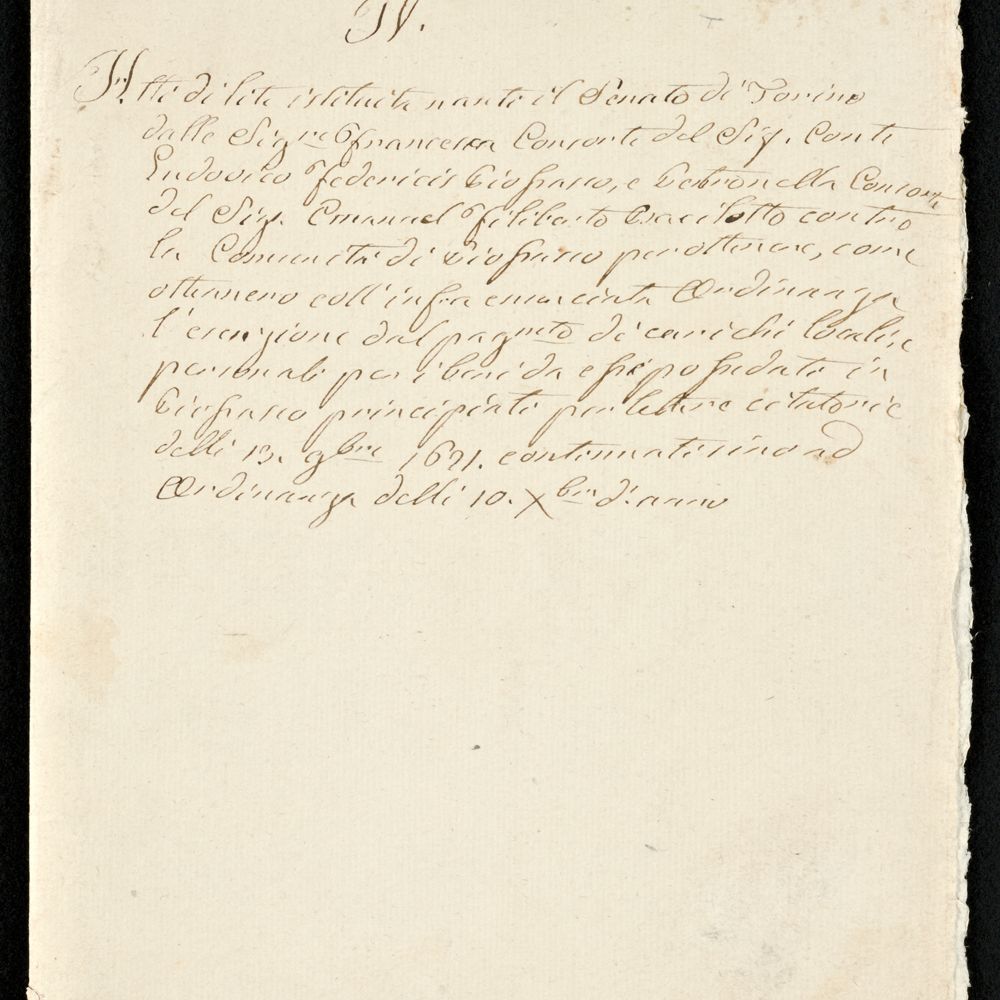 IV.
Atti di lite istituita nanti il Senato di Torino
dalle Sig.re Francesca Consorte del Sig. Conte
Ludovico Federicis Piossasco, e Petronella Consorte
del Sig. Emanuel Filiberto contro
la Comunità di Piossasco per ottenere, come
ottennero coll'infra enunciata Ordinanza
l'esenzione dal pagmto de carichi locali, e
personali per i beni da essi possedati in
Piossasco principiati per lettere citatorie
delli 13. 9bre 1621. continuati sino ad
Ordinanza delli 10. Xbre d.o anno